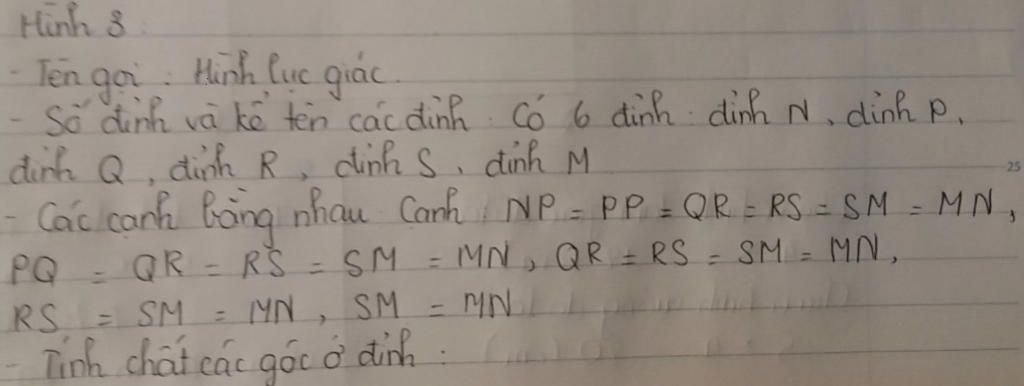 Hình 3
- Tên gọi : Hình lục giác.
- Số đỉnh và kể tên các đỉnh : Có 6 đỉnh : đỉnh N, đỉnh P,
đỉnh Q, đỉnh R, đỉnh S, đỉnh M
25
- Các cạnh bằng nhau Cạnh : NP = PP = QR = RS = SM = MN,
PQ = QR = RS = SM = MN, QR = RS = SM = MN,
RS = SM = MN, SM = MN
- Tính chất các góc ở đỉnh :